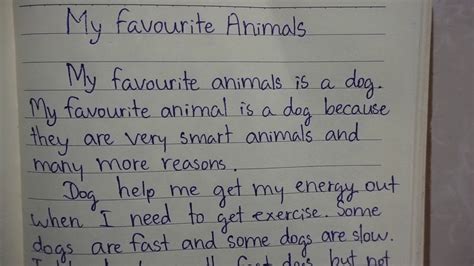 My favourite Animals
My favourite animals is a dog.
My favourite animal is a dog because
they are very smart animals and
many more reasons.
Dog help me get my energy out
when I need to get exercise. Some
dogs are fast and some dogs are slow.
but not